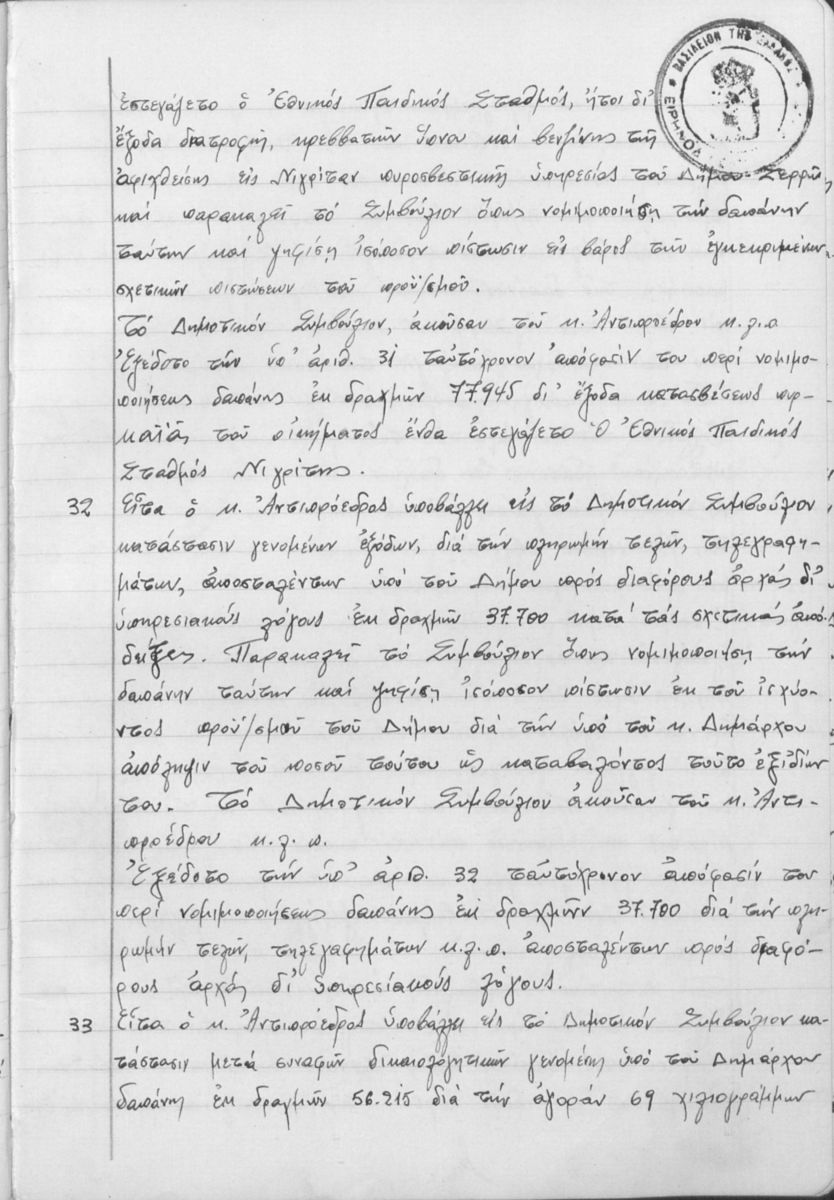 ΒΑΣΙΛΕΙΟΝ ΤΗΣ ΕΛΛΑΔΟΣ
ΕΙΡΗΝΟΔ
ἐστεγάζετο ὁ Ἐθνικός Παιδικός Σταθμός, ἤτοι δι'
ἔξοδα διατροφῆς, κρεββατιῶν ὕπνου καί βενζίνης τῆς
ἀφιχθείσης εἰς Νιγρίταν πυροσβεστικῆς ὑπηρεσίας τοῦ Δήμου Σερρῶν
καί παρακαλεῖ τό Συμβούλιον ὅπως νομιμοποιήσῃ τήν δαπάνην
ταύτην καί ψηφίσῃ ἰσόποσον πίστωσιν εἰς βάρος τῶν ἐγκεκριμένων
σχετικῶν πιστώσεων τοῦ προϋ/σμοῦ.
Τό Δημοτικόν Συμβούλιον, ἀκοῦσαν τοῦ κ. Ἀντιπροέδρου κ.λ.π
Ἐξέδοτο τήν ὑπ' ἀριθ. 31 ταὐτόχρονον ἀπόφασίν του περί νομιμο-
ποιήσεως δαπάνης ἐκ δραχμῶν 77.945 δι' ἔξοδα κατασβέσεως πυρ-
καϊᾶς τοῦ οἰκήματος ἔνθα ἐστεγάζετο ὁ Ἐθνικός Παιδικός
Σταθμός Νιγρίτης.
32 Εἶτα ὁ κ. Ἀντιπρόεδρος ὑποβάλλει εἰς τό Δημοτικόν Συμβούλιον
κατάστασιν γενομένων ἐξόδων, διά τήν πληρωμήν τελῶν, τηλεγραφη-
μάτων, ἀποσταλέντων ὑπό τοῦ Δήμου πρός διαφόρους ἀρχάς δι'
ὑπηρεσιακούς λόγους ἐκ δραχμῶν 37.700 κατά τάς σχετικάς ἀπο-
δείξεις. Παρακαλεῖ τό Συμβούλιον ὅπως νομιμοποιήσῃ τήν
δαπάνην ταύτην καί ψηφίσῃ ἰσόποσον πίστωσιν ἐκ τοῦ ἰσχύο-
ντος προϋ/σμοῦ τοῦ Δήμου διά τήν ὑπό τοῦ κ. Δημάρχου
ἀπόληψιν τοῦ ποσοῦ τούτου ὡς καταβαλόντος τοῦτο ἐξ ἰδίων
του. Τό Δημοτικόν Συμβούλιον ἀκοῦσαν τοῦ κ. Ἀντι-
προέδρου κ.λ.π.
Ἐξέδοτο τήν ὑπ' ἀριθ. 32 ταὐτόχρονον ἀπόφασίν του
περί νομιμοποιήσεως δαπάνης ἐκ δραχμῶν 37.700 διά τήν πλη-
ρωμήν τελῶν, τηλεγαφημάτων κ.λ.π. ἀποσταλέντων πρός διαφό-
ρους ἀρχάς δι' ὑπηρεσιακούς λόγους.
33 Εἶτα ὁ κ. Ἀντιπρόεδρος ὑποβάλλει εἰς τό Δημοτικόν Συμβούλιον κα-
τάστασιν μετά συναφῶν δικαιολογητικῶν γενομένης ὑπό τοῦ Δημάρχου
δαπάνης ἐκ δραχμῶν 56.215 διά τήν ἀγοράν 69 χιλιογράμμων